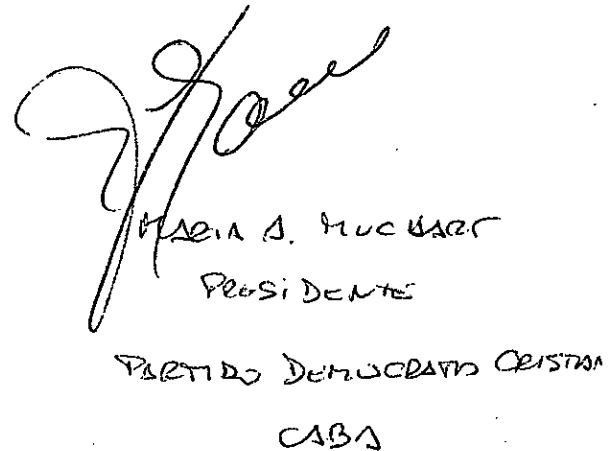 MARIA A. MUCKART
PRESIDENTE
PARTIDO DEMOCRATA CRISTIAN
CABA